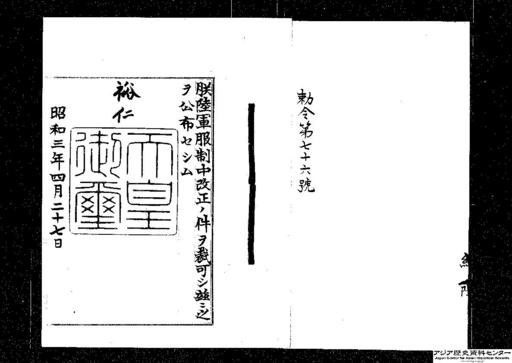 勅令第七十六號
朕陸軍服制中改正ノ件ヲ裁可シ茲ニ之
ヲ公布セシム
裕仁
天皇
御璽
昭和三年四月二十七日
アジア歴史資料センター
Japan Center for Asian Historical Records